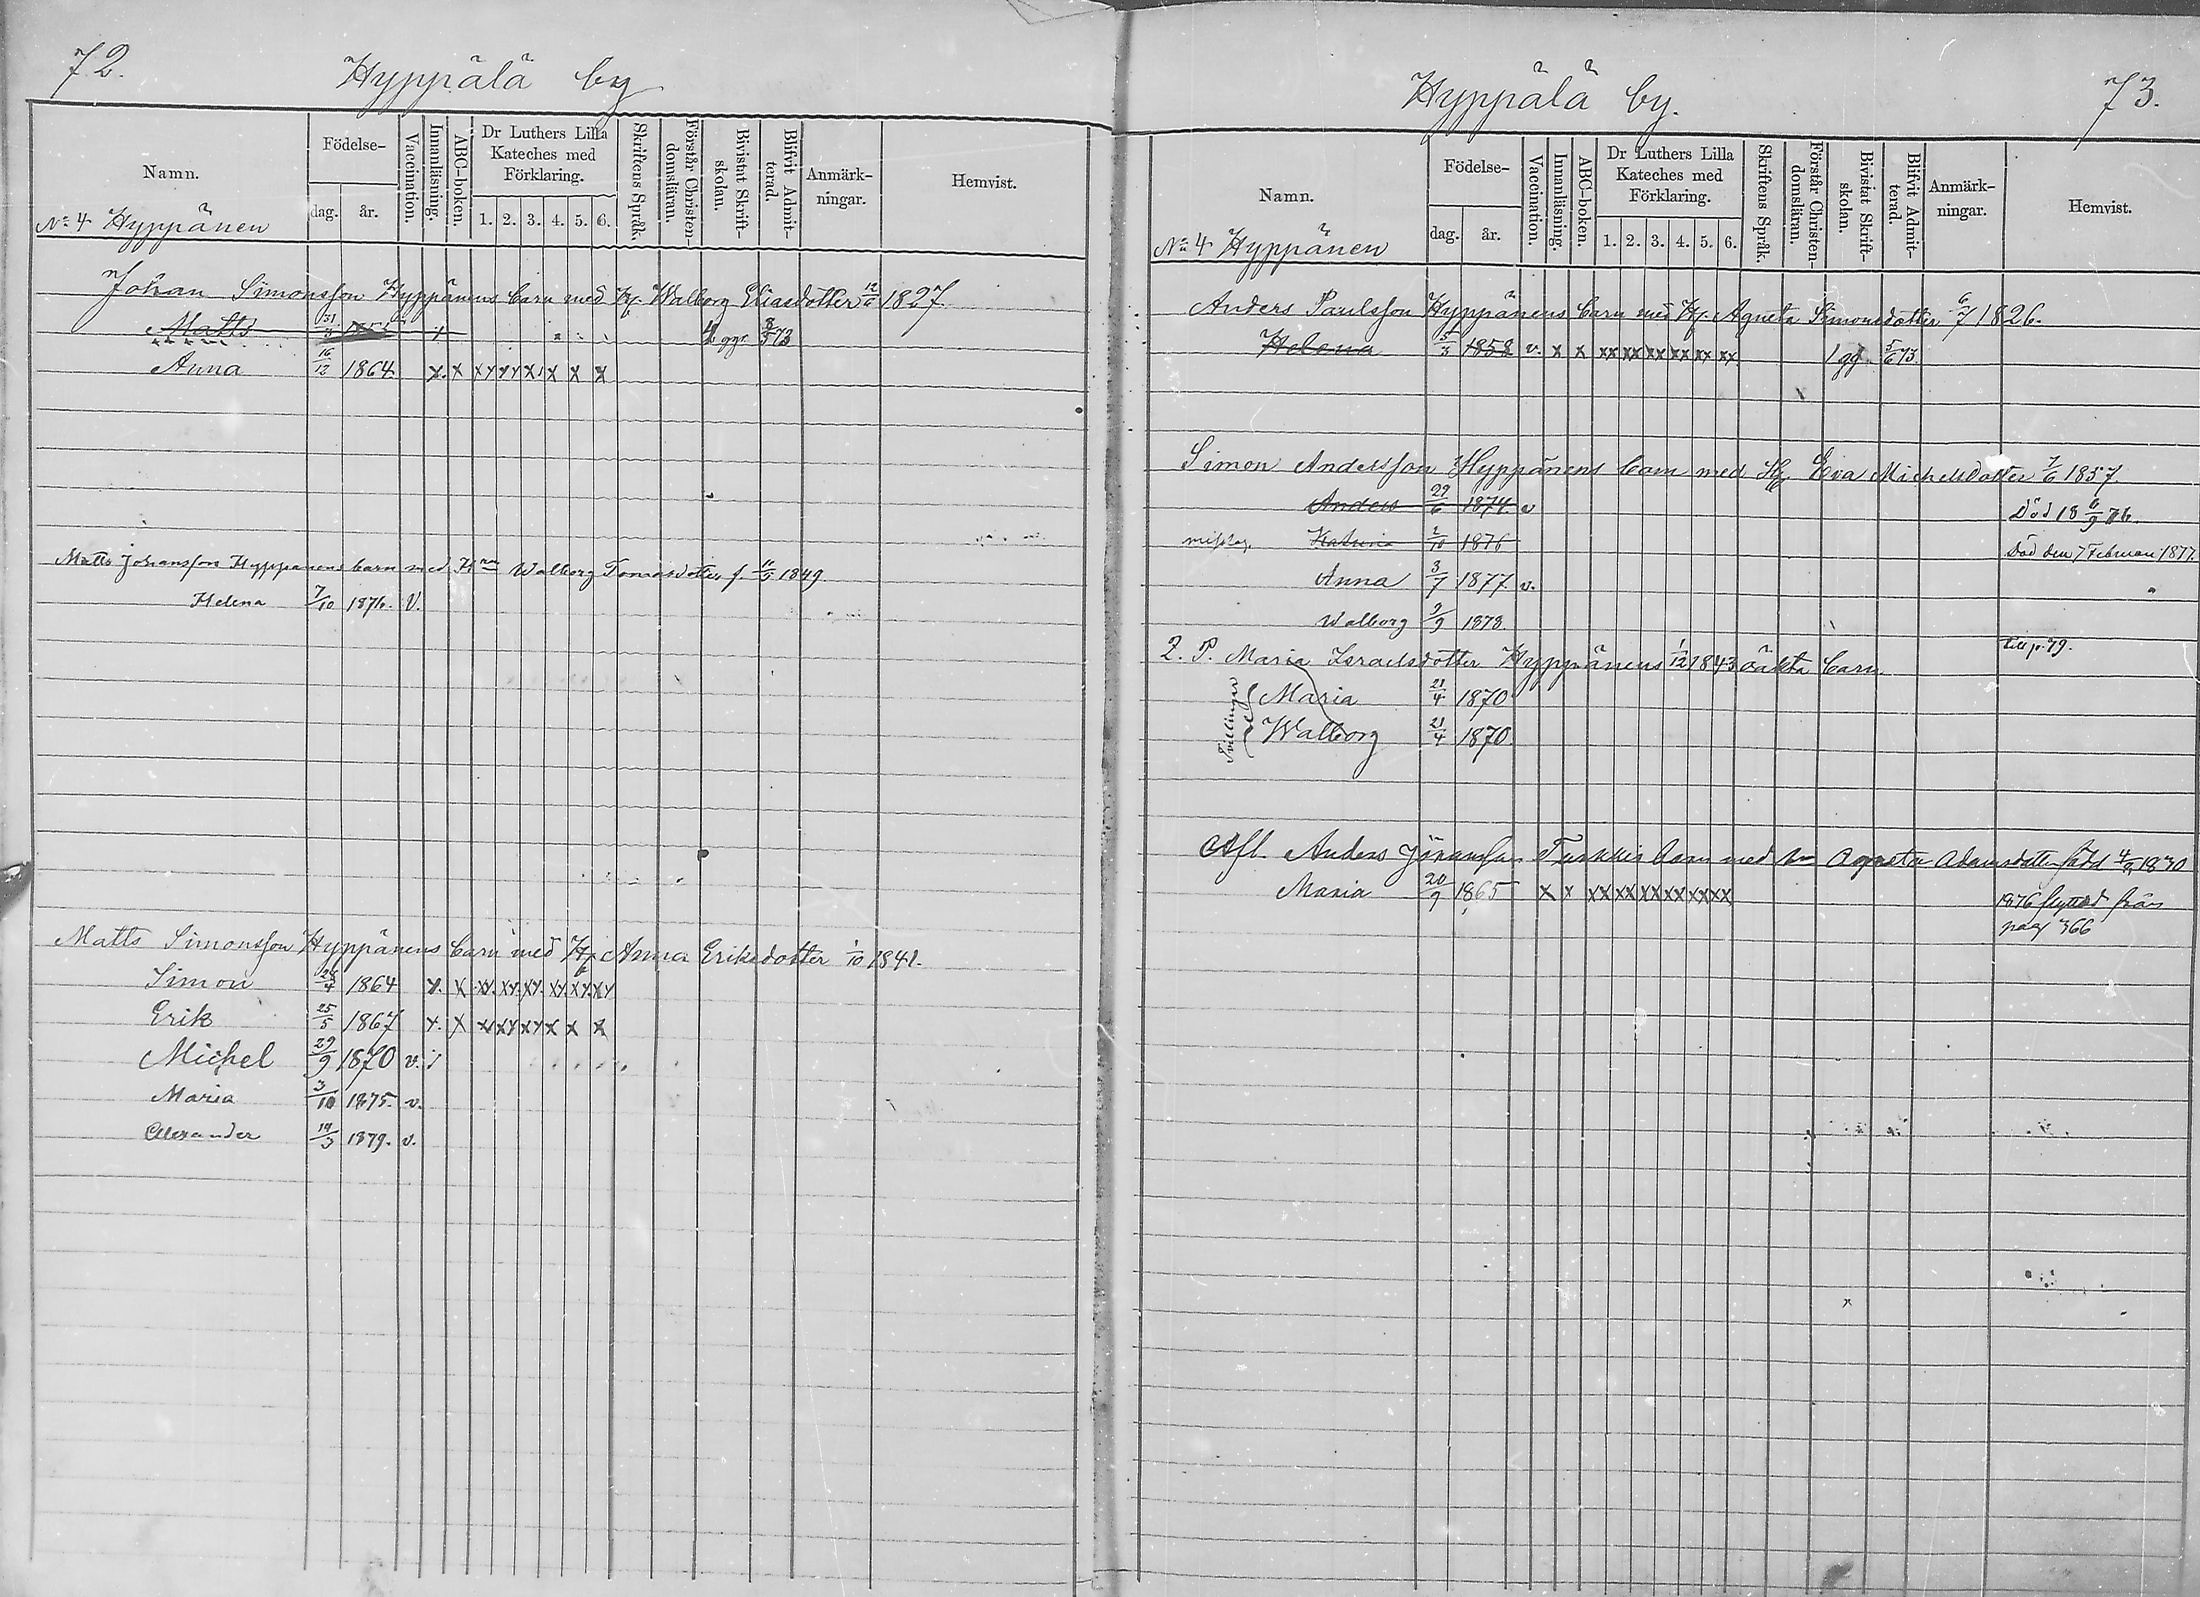 72.
Hyppälä by
Namn.
Födelse-
dag.
år.
Vaccination.
Innanläsning.
ABC-boken.
Dr Luthers Lilla Kateches med Förklaring.
1. 2. 3. 4. 5. 6.
Skriftens Språk.
Förstår Christendomsläran.
Bivistat Skriftskolan.
Blifvit Admitterad.
Anmärkningar.
Hemvist.
No 4 Hyppänen
Johan Simonsson Hyppänens barn med H. Walborg Eliasdotter 12/6 1827.
Matts 31/3 x 4 ggr 8/3 73
Anna 16/12 1864 x. x xx xx x x x x
Matts Johansson Hyppänens barn med Walborg Tomasdotter f. 11/5 1849
Helena 7/10 1876. V.
Matts Simonsson Hyppänens barn med H. Anna Eriksdotter 1/10 1841.
Simon 28/4 1864 x. x xx. xx. xx. xx. xx. xx
Erik 25/5 1867 x. x xx xx xx x x x
Michel 29/9 1870 v.
Maria 3/10 1875. v.
Alexander 19/3 1879. v.
Hyppälä by.
73.
Namn.
Födelse-
dag.
år.
Vaccination.
Innanläsning.
ABC-boken.
Dr Luthers Lilla Kateches med Förklaring.
1. 2. 3. 4. 5. 6.
Skriftens Språk.
Förstår Christendomsläran.
Bivistat Skriftskolan.
Blifvit Admitterad.
Anmärkningar.
Hemvist.
No 4 Hyppänen
Anders Paulsson Hyppänens barn med H. Agneta Simonsdotter 6/7 1826.
Helena 5/3 1858 v. x x xx xx xx xx xx xx 1 gg. 5/6 73.
Simon Andersson Hyppänens barn med H. Eva Michelsdotter 7/6 1857.
Anders 29/6 1874. v Död 18 6/9 76.
Katrina 2/10 1876 Död den 7 Februari 1877.
Anna 3/7 1877. v.
Walborg 9/9 1878.
till p. 79.
Q. P. Maria Israelsdotter Hyppänens 1/12 1843 oäkta barn.
Tvillingar
Maria 21/4 1870
Walborg 21/4 1870.
Afl. Anders Jöransson Turkkis barn med Agneta Adamsdotter född 4/9 1830
Maria 20/9 1865 x x xx xx xx xx xx xx 1876 flyttad från
pag 366